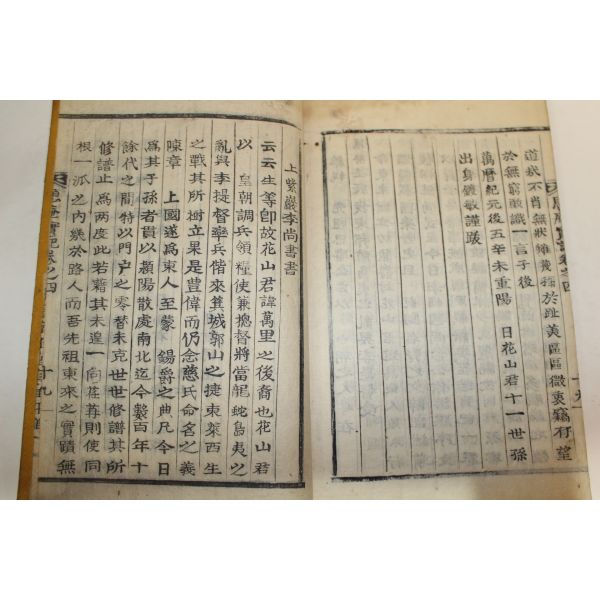 於無窮敢識一言子後
萬曆紀元後五辛未重陽 日花山君十一世孫
出身儆敏謹跋
上紫巖李尚書書
云云生等卽故花山君諱萬里之後裔也花山君
以 皇朝調兵領糧使兼摠督將當龍蛇島夷之
亂與李提督率兵偕來箕城郭山之捷東萊西生
之戰其所樹立果是豊偉而仍念慈氏命名之義
㖫章 上國遂爲東人至蒙 錫爵之典凡今日
爲其子孫者貫以潁陽散處南北迄今數百年十
餘代之間特以門戶之零替未克世世修譜其所
修譜止爲兩度此若藉其未遑一向荏苒則使同
根一派之內幾於路人而吾先祖東來之實蹟無